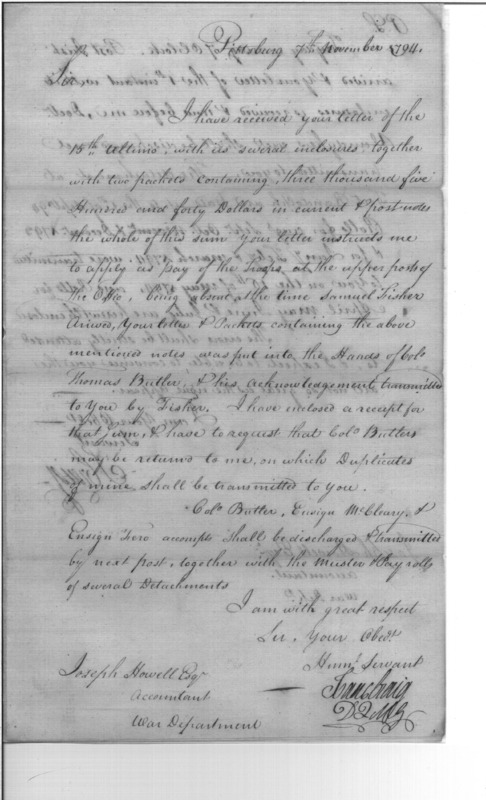 Pittsburg 7th November 1794.
Sir
I have received your letter of the
15th ultimo, with its several inclosures, together
with two packets containing, three thousand five
Hundred and forty Dollars in current & post notes
the whole of this sum your letter instructs me
to apply as pay of the Troops at the upper posts of
the Ohio, being absent at the time Samuel Fisher
Arived, your letter & Packets containing the above
mentioned notes was put into the Hands of Colo
Thomas Butler, & his acknowledgement transmitted
to You by Fisher. I have enclosed a receipt for
that sum, & have to request that Colo Butlers
may be returned to me, on which Duplicates
of mine shall be transmitted to you.
Colo Butler, Ensign McCleary, &
Ensign Tero accompts shall be discharged & transmitted
by next post, together with the Muster & Pay rolls
of several Detachments
I am with great respect
Sir, Your Obedt
Huml Servant
Isaac Craig
D Q M G
Joseph Howell Esqr
Accountant
War Department